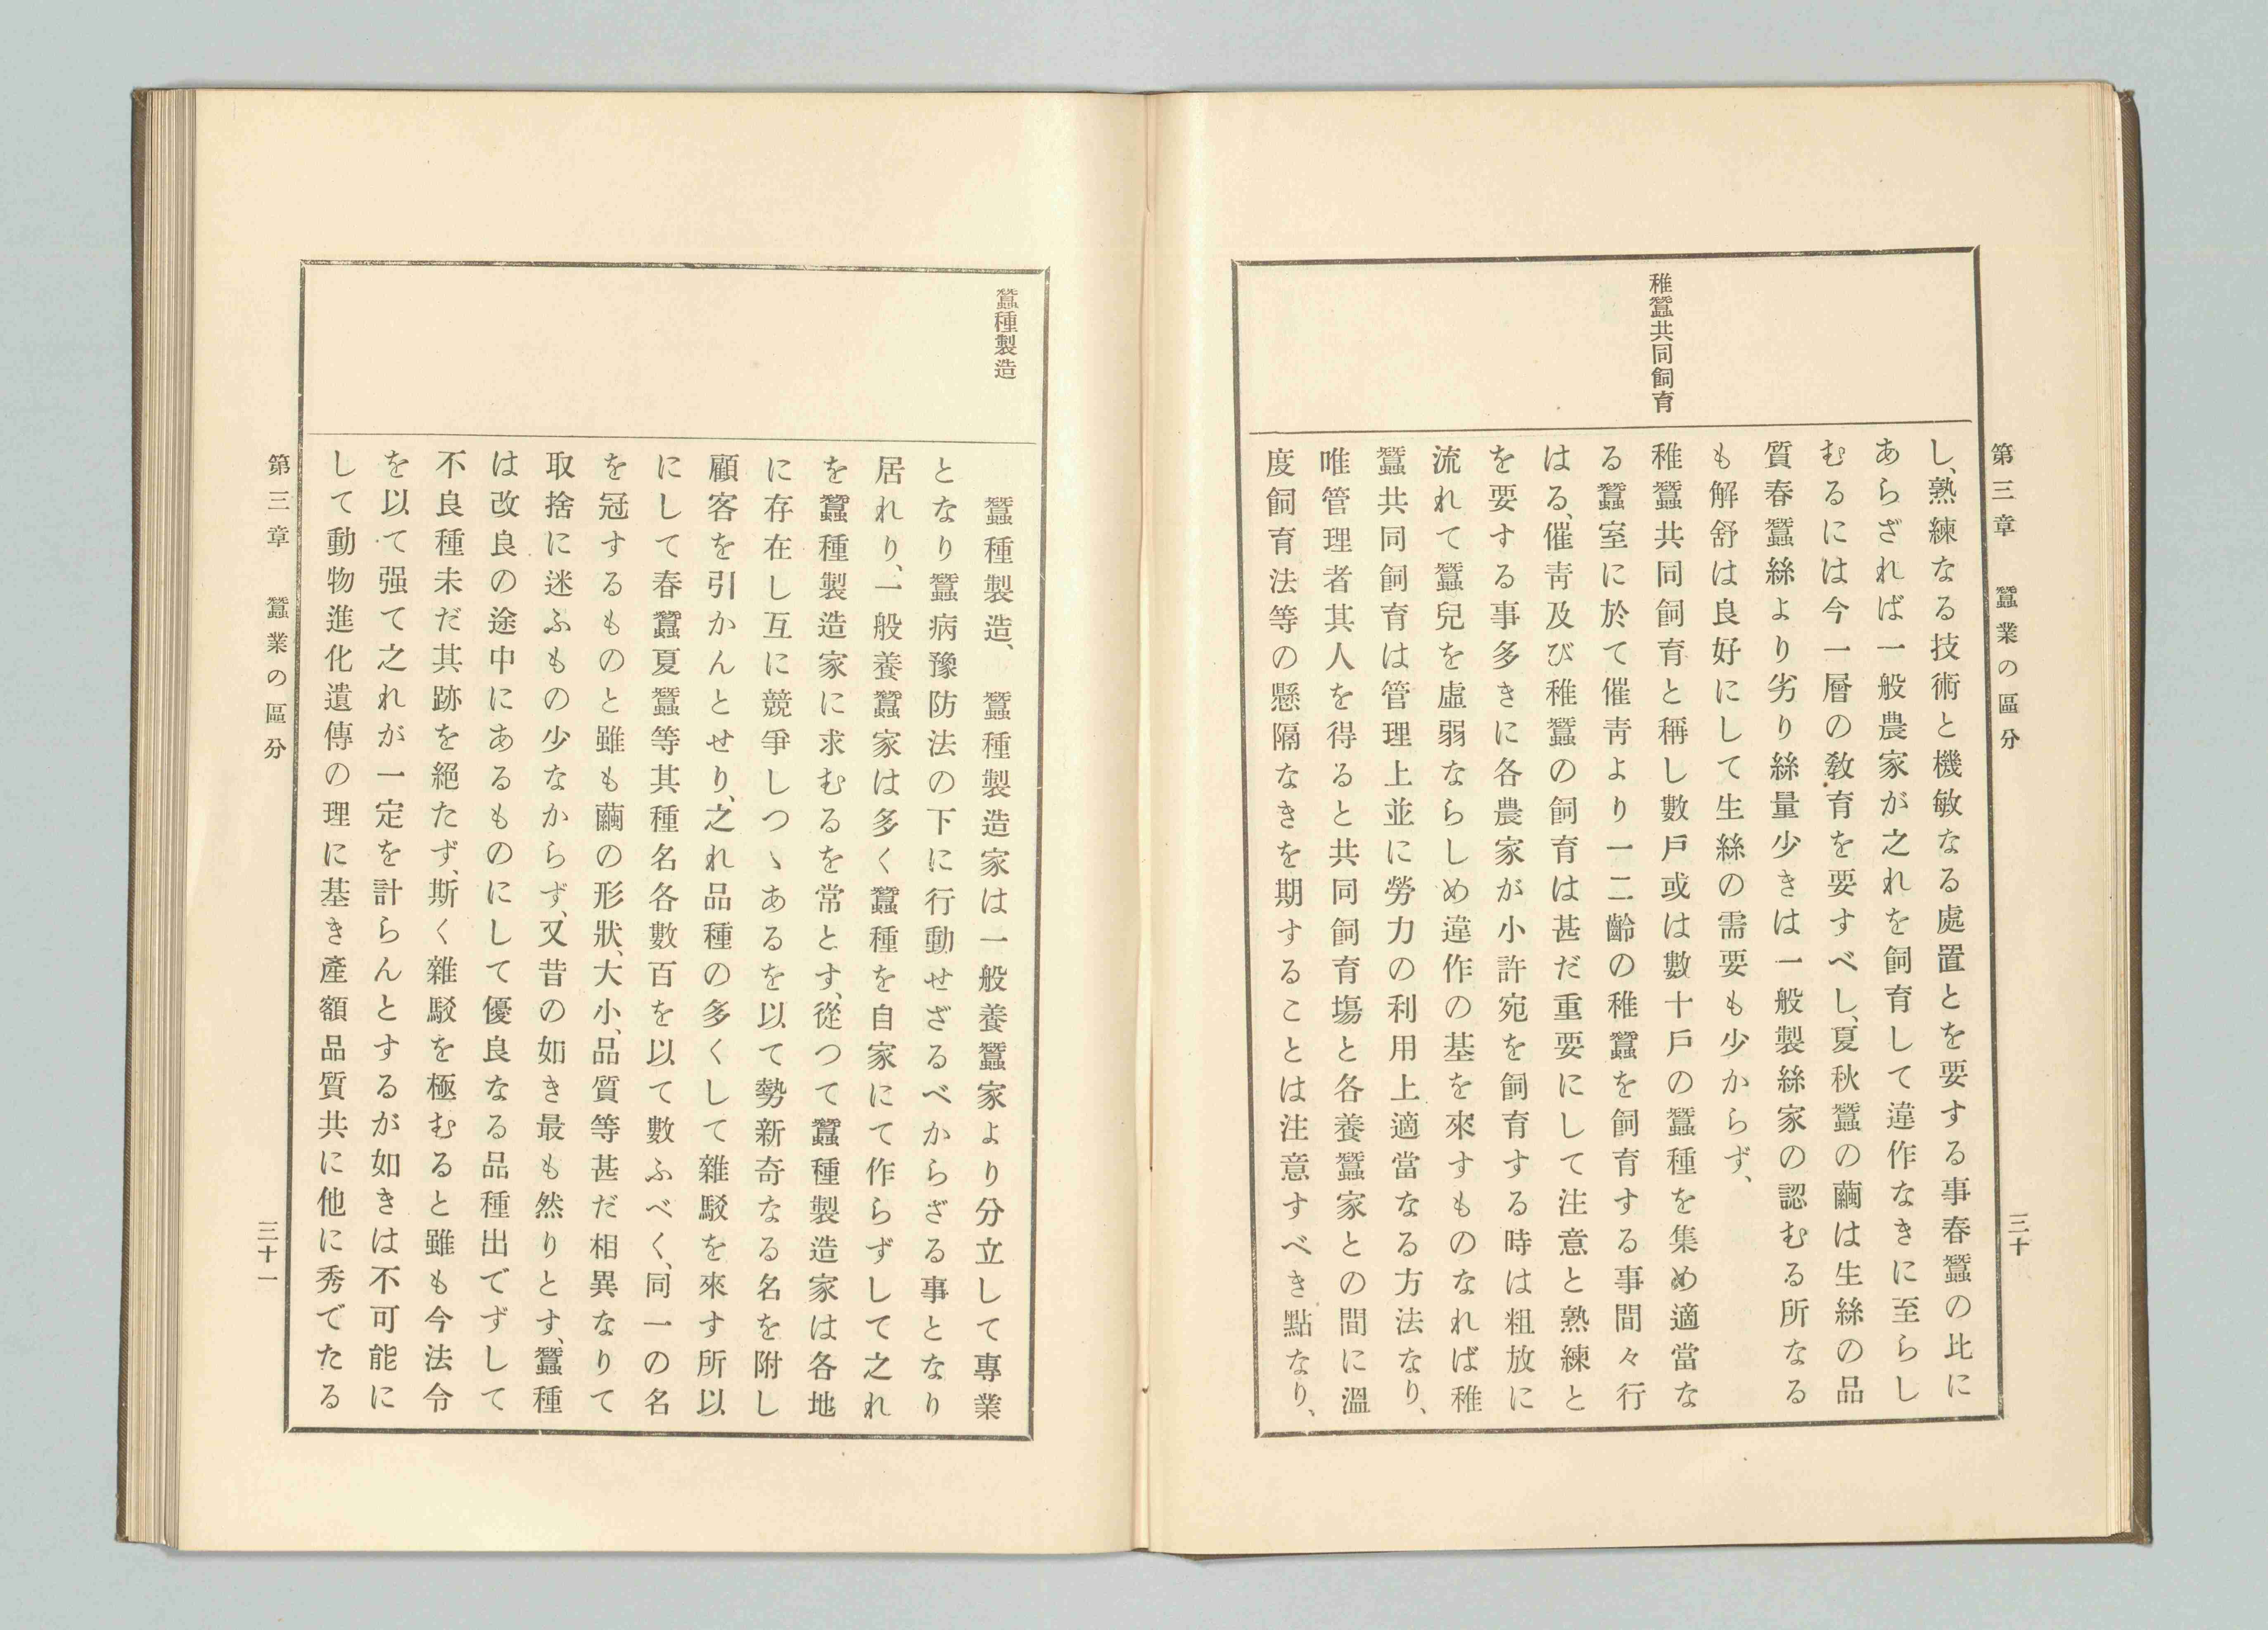 第三章　蠶業の區分
三十
稚蠶共同飼育
し、熟練なる技術と機敏なる處置とを要する事春蠶の比に
あらざれば一般農家が之れを飼育して違作なきに至らし
むるには今一層の敎育を要すべし、夏秋蠶の繭は生絲の品
質春蠶絲より劣り絲量少きは一般製絲家の認むる所なる
も解舒は良好にして生絲の需要も少からず、
稚蠶共同飼育と稱し數戶或は數十戶の蠶種を集め適當な
る蠶室に於て催靑より一二齡の稚蠶を飼育する事間々行
はる、催靑及び稚蠶の飼育は甚だ重要にして注意と熟練と
を要する事多きに各農家が小許宛を飼育する時は粗放に
流れて蠶兒を虛弱ならしめ違作の基を來すものなれば稚
蠶共同飼育は管理上並に勞力の利用上適當なる方法なり、
唯管理者其人を得ると共同飼育塲と各養蠶家との間に溫
度飼育法等の懸隔なきを期することは注意すべき點なり、
蠶種製造
蠶種製造、　蠶種製造家は一般養蠶家より分立して專業
となり蠶病豫防法の下に行動せざるべからざる事となり
居れり、一般養蠶家は多く蠶種を自家にて作らずして之れ
を蠶種製造家に求むるを常とす、從つて蠶種製造家は各地
に存在し互に競爭しつゝあるを以て勢新奇なる名を附し
顧客を引かんとせり、之れ品種の多くして雜駁を來す所以
にして春蠶夏蠶等其種名各數百を以て數ふべく、同一の名
を冠するものと雖も繭の形狀、大小、品質等甚だ相異なりて
取捨に迷ふもの少なからず、又昔の如き最も然りとす、蠶種
は改良の途中にあるものにして優良なる品種出でずして
不良種未だ其跡を絕たず、斯く雜駁を極むると雖も今法令
を以て强て之れが一定を計らんとするが如きは不可能に
して動物進化遺傳の理に基き產額品質共に他に秀でたる
第三章　蠶業の區分
三十一